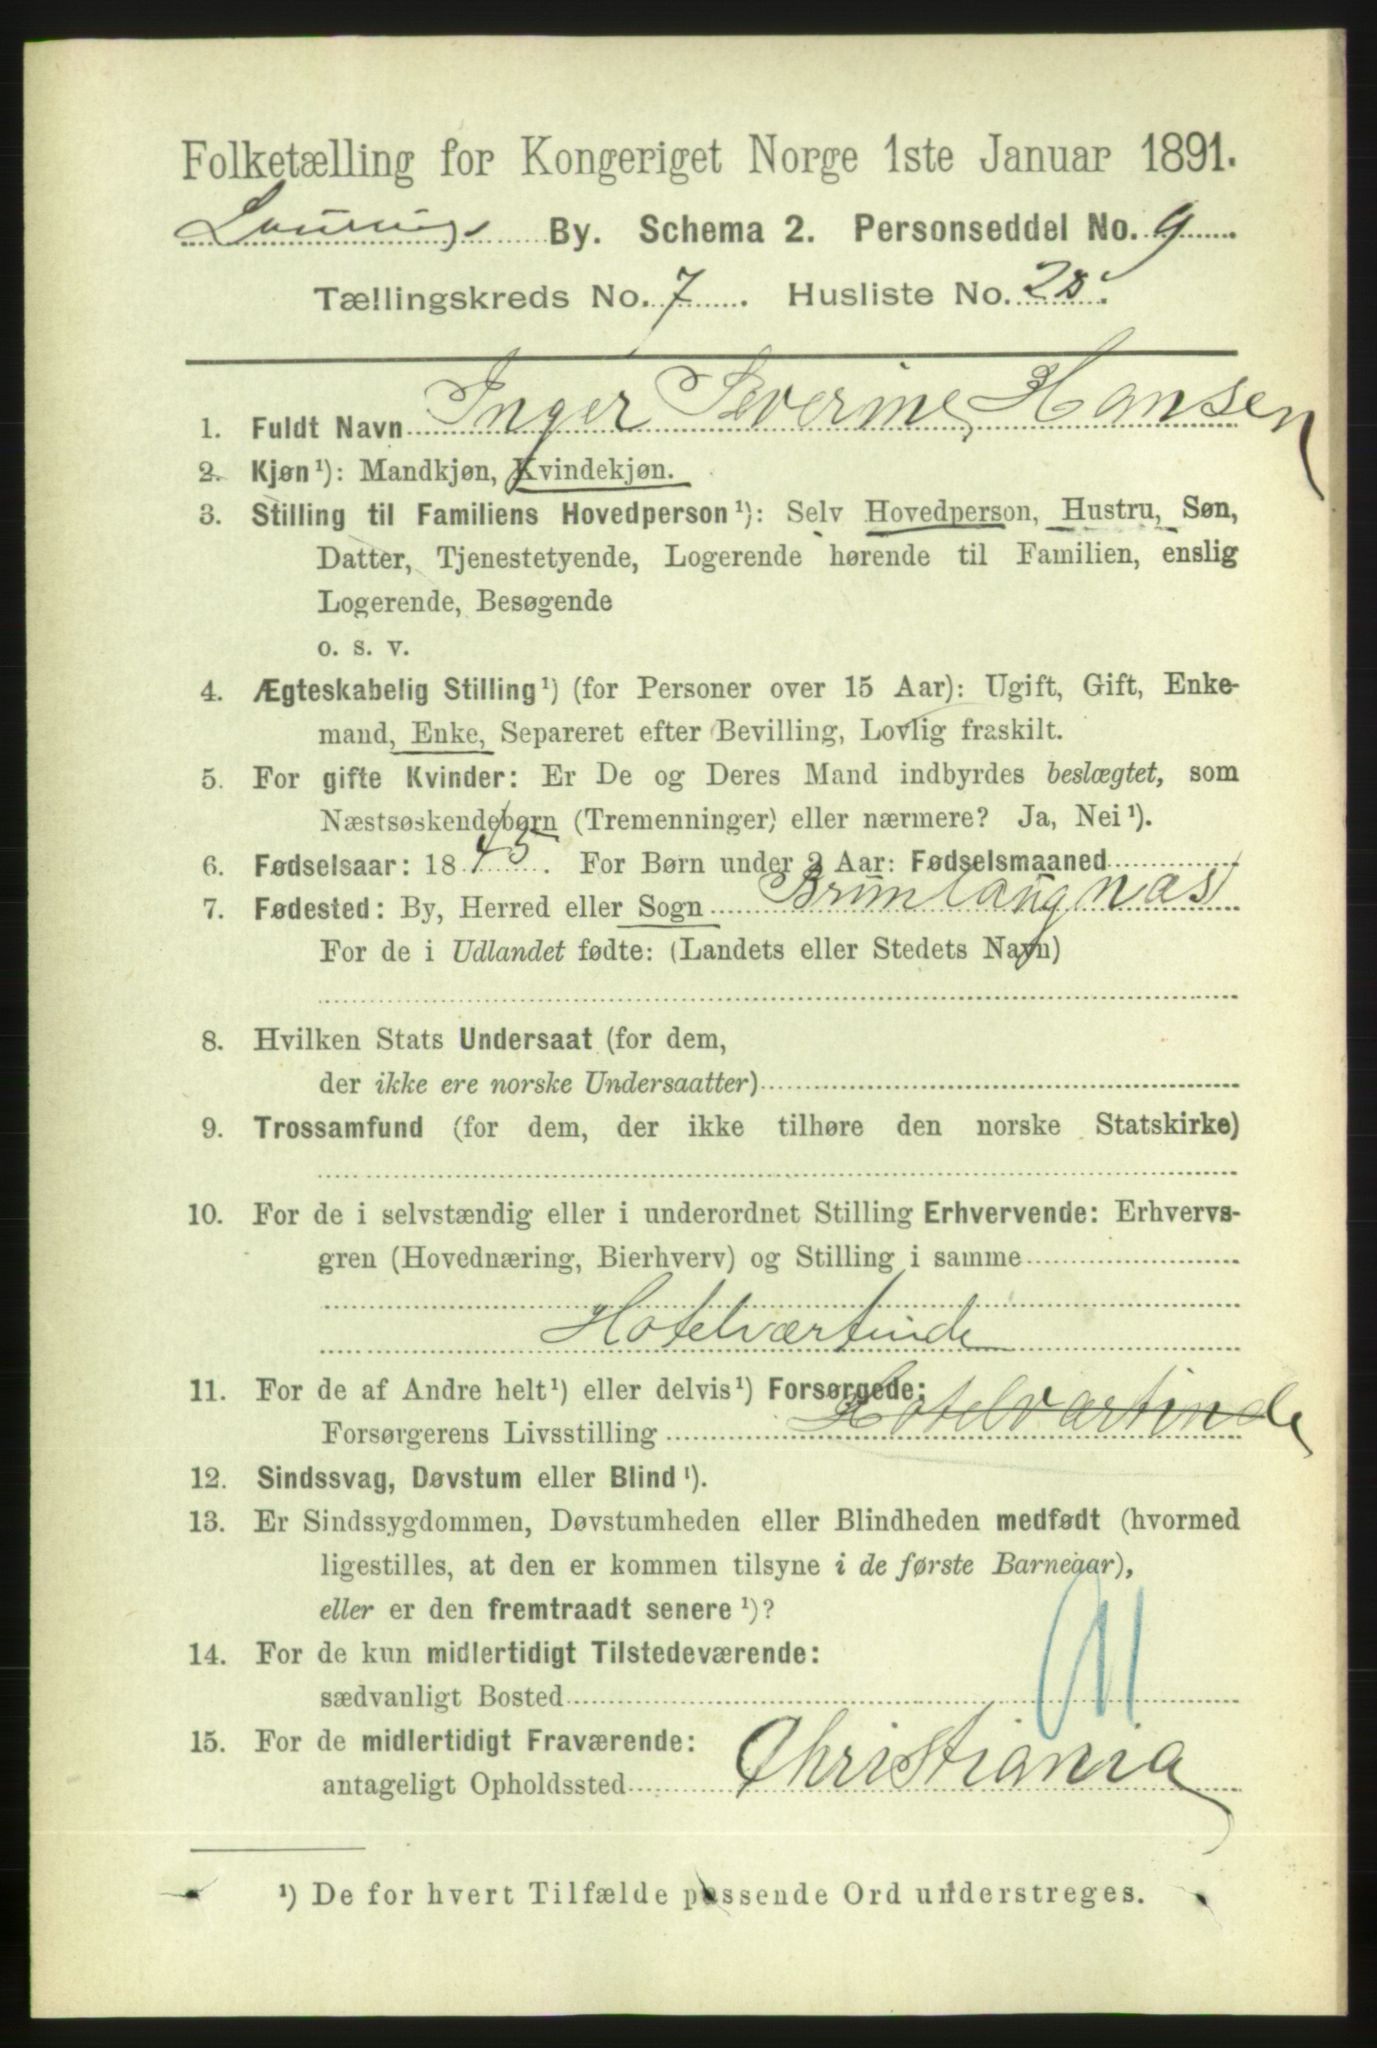 Folketælling for Kongeriget Norge 1ste Januar 1891.
Laurvigs By. Schema 2. Personseddel No. 9
Tællingskreds No. 7. Husliste No. 28.
1. Fuldt Navn Inger Severine Hansen
2. Kjøn¹): Mandkjøn, Kvindekjøn.
3. Stilling til Familiens Hovedperson¹): Selv Hovedperson, Hustru, Søn,
Datter, Tjenestetyende, Logerende hørende til Familien, enslig
Logerende, Besøgende
o. s. v.
4. Ægteskabelig Stilling¹) (for Personer over 15 Aar): Ugift, Gift, Enke-
mand, Enke, Separeret efter Bevilling, Lovlig fraskilt.
5. For gifte Kvinder: Er De og Deres Mand indbyrdes beslægtet, som
Næstsøskendebørn (Tremenninger) eller nærmere? Ja, Nei¹).
6. Fødselsaar: 1845. For Børn under 2 Aar: Fødselsmaaned
7. Fødested: By, Herred eller Sogn Brunlaugnæs
For de i Udlandet fødte: (Landets eller Stedets Navn)
8. Hvilken Stats Undersaat (for dem,
der ikke ere norske Undersaatter)
9. Trossamfund (for dem, der ikke tilhøre den norske Statskirke)
10. For de i selvstændig eller i underordnet Stilling Erhvervende: Erhvervs-
gren (Hovednæring, Bierhverv) og Stilling i samme
Hotelværtinde
11. For de af Andre helt¹) eller delvis¹) Forsørgede:
Forsørgerens Livsstilling Hotelvartinde
12. Sindssvag, Døvstum eller Blind¹).
13. Er Sindssygdommen, Døvstumheden eller Blindheden medfødt (hvormed
ligestilles, at den er kommen tilsyne i de første Barneaar),
eller er den fremtraadt senere¹)?
14. For de kun midlertidigt Tilstedeværende:
sædvanligt Bosted
15. For de midlertidigt Fraværende:
antageligt Opholdssted Christiania
¹) De for hvert Tilfælde passende Ord understreges.